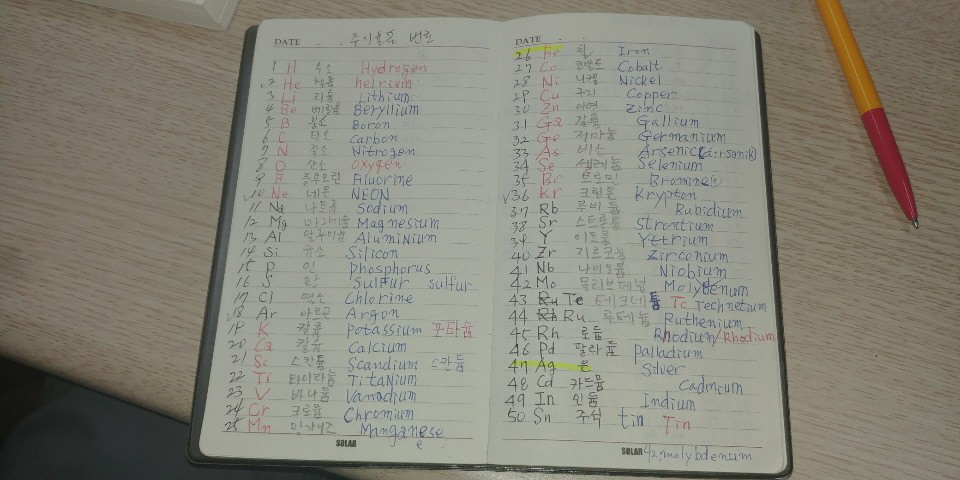 DATE . . 주기율표 번호
1 H 수소 Hydrogen
2 He 헬륨 helrium
3 Li 리튬 Lithium
4 Be 베릴륨 Beryllium
5 B 붕소 Boron
6 C 탄소 Carbon
7 N 질소 Nitrogen
8 O 산소 Oxygen
9 F 플루오린 Fluorine
10 Ne 네온 NEON
11 Na 나트륨 Sodium
12 Mg 마그네슘 Magnesium
13 Al 알루미늄 AlumiNium
14 Si 규소 Silicon
15 P 인 phosphorus
16 S 황 Sulfur sulfur
17 Cl 염소 Chlorine
18 Ar 아르곤 Argon
19 K 칼륨 potassium 포타슘
20 Ca 칼슘 Calcium
21 Sc 스칸듐 Scandium 스칸듐
22 Ti 티타늄 TitaNium
23 V 바나듐 Vanadium
24 Cr 크로뮴 Chromium
25 Mn 망가니즈 Manganese
e
SOLAR
DATE . .
26 Fe 철 Iron
27 Co 코발트 Cobalt
28 Ni 니켈 Nickel
29 Cu 구리 Copper
30 Zn 아연 Zinc
31 Ga 갈륨 Gallium
32 Ge 저마늄 Germanium
33 As 비소 Arsenic(arsenik)
34 Se 셀레늄 Selenium
35 Br 브로민 Bromine
36 Kr 크립톤 Krypton
37 Rb 루비듐 Rubidium
38 Sr 스트론튬 Strontium
39 Y 이트륨 Yttrium
40 Zr 지르코늄 Zirconium
41 Nb 나이오븀 Niobium
42 Mo 몰리브데넘 Molybdenum
43 Ru Te 테크네튬 Tc Technetium
44 Rh Ru 루테늄 Ruthenium
45 Rh 로듐 Rhodium/Rhodium
46 Pd 팔라듐 palladium
47 Ag 은 Silver
48 Cd 카드뮴 Cadmeum
49 In 인듐 Indium
50 Sn 주석 tin Tin
SOLAR 42, molybdenum